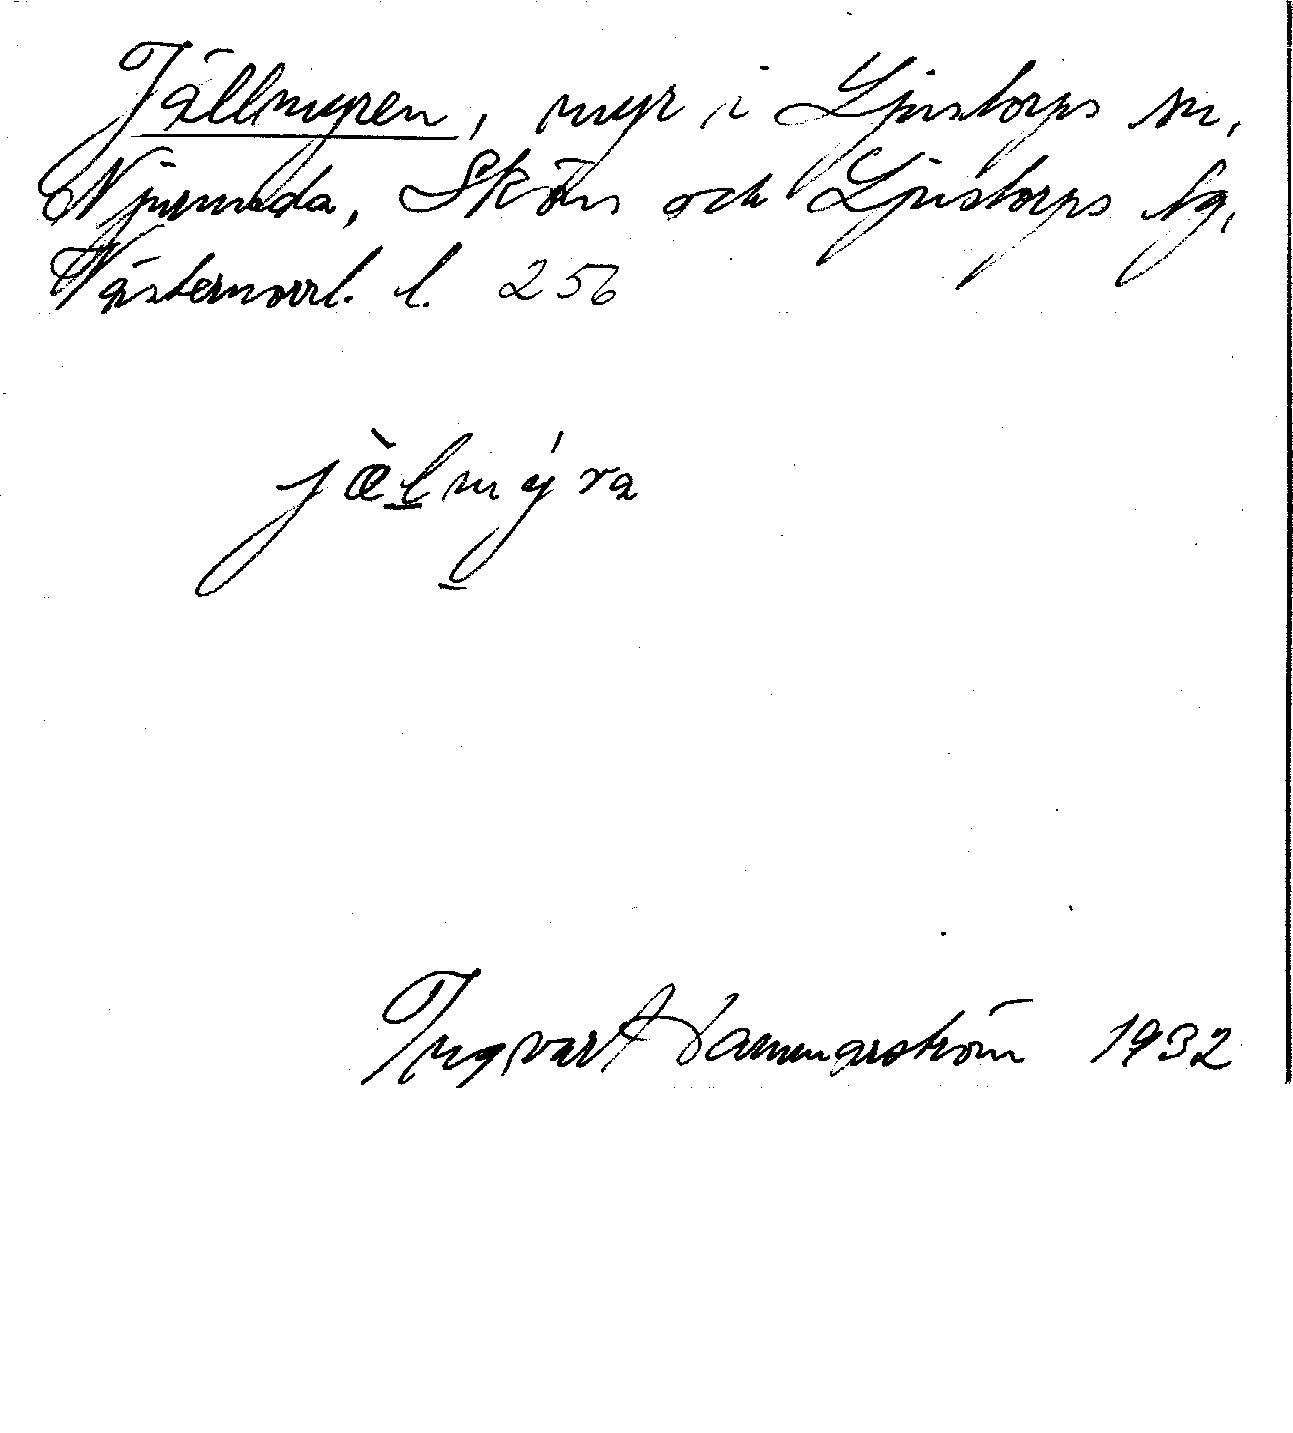 Jällmyren, myr i Ljustorps sn,
Njurunda, Sköns och Ljustorps tg,
Västernorrl. l. 256
jæ̀lmýra
Ingvart Lammgarström 1932